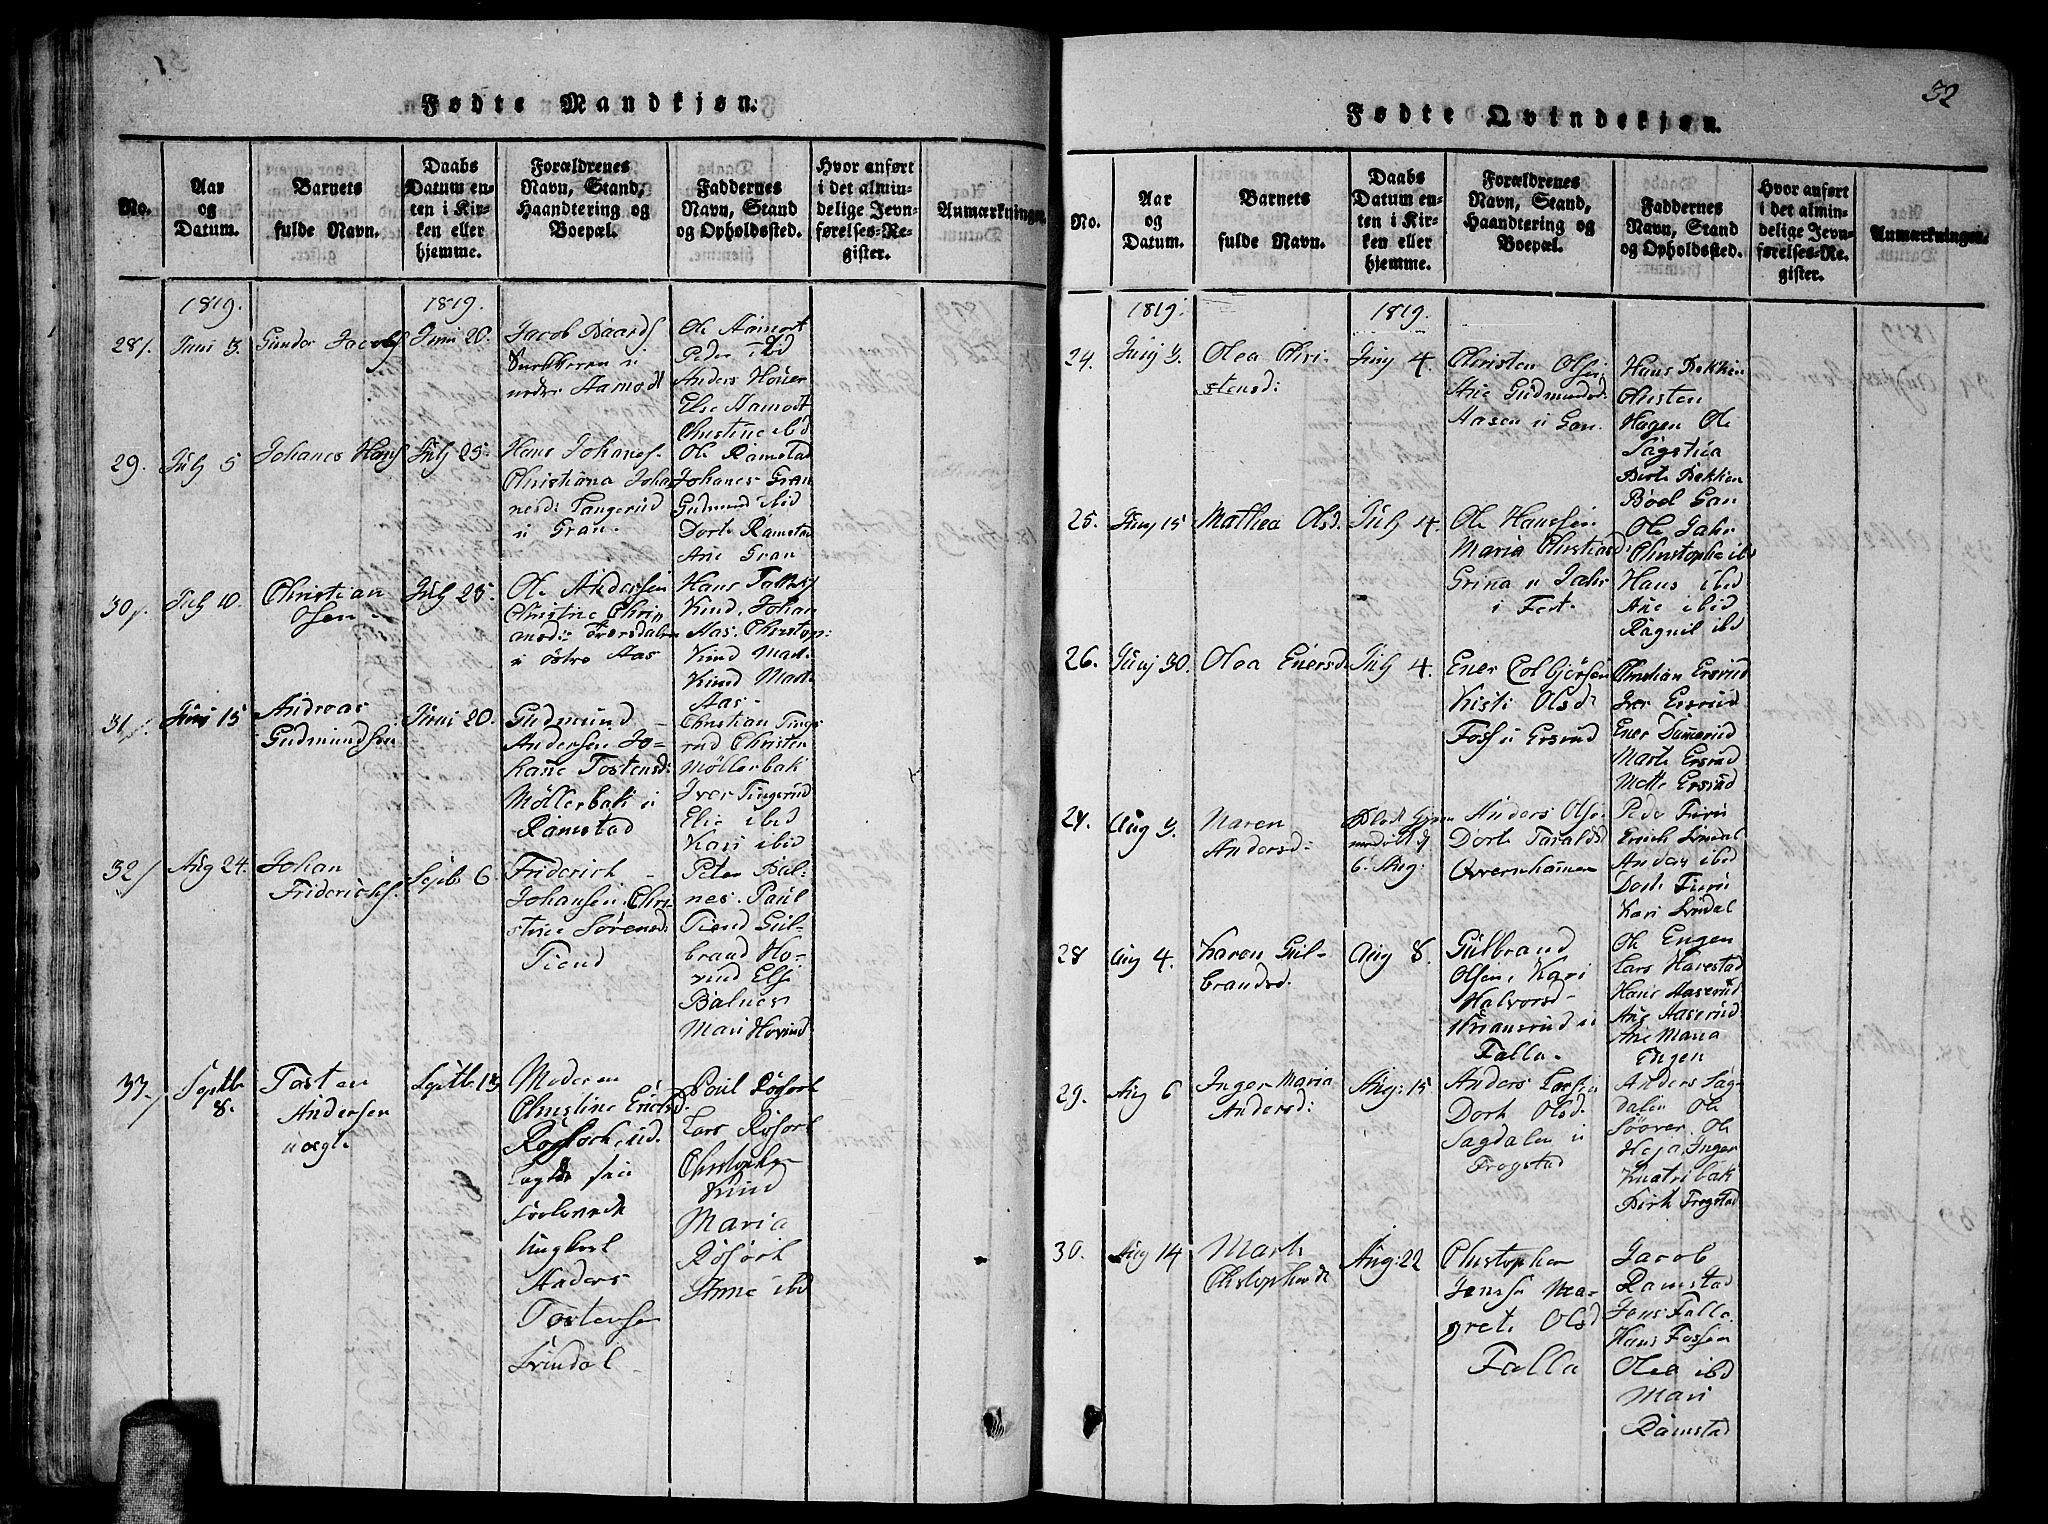 Fødte Mandkjøn.
No.
Aar
og
Datum.
Barnets
fulde Navn.
Daabs
Datum en-
ten i Kir-
ken eller
hjemme.
Forældrenes
Navn, Stand,
Haandtering og
Boepæl.
Faddernes
Navn, Stand
og Opholdssted.
Hvor anført
i det almin-
delige Jevn-
førelses-Re-
gister.
Anmærkninger.
1819.
1819.
28.
Juni 3.
Gunder Jacobs
Juni 20.
Jacob Baards
nedre Aamodt
Ole Aamodt
Peder ibid
Anders Houer
Else Aamodt
Christine ibid
29.
July 5
Johanes Hans
July 25.
Hans Johanes.
Christiana Joha
nesd: Tangerud
u Gran.
Ole Ramstad
Johanes Gran
Gudmund ibid
Dorte Ramstad
Ane Gran
30.
July 10.
Christian
Olsen
July 25.
Ole Andersen
Christine Chri
u østre Aas
Hans
Kind. Johan
Aas. Christop:
Kind Marte
Kind Marte
Aas
31.
Juni 15
Andreas
Gudmundsen
Juni 20.
Gudmund
Andersen Jo-
hane Tostensd:
Møllerbak u
Ramstad
Christian Tinge
rud Christen
Møllerbak
Iver Tingerud
Elie ibid
Kari ibid
32
Aug 24.
Johan
Friderichs.
Septb 6.
Friderich
Johansen. Chri
stine Sørensd:
Tiend
Peter Bal-
nes. Paul
Tiend Gul-
brand Ho-
vind Else
Balnes
Mari Hovind
33.
Septb
8.
Tosten
Andersen
uægte
Septb 13
Moderen
Christine Erichsd.
Røsfort, ud
lagde sin
forlovede
Ungkarl
Anders
Tostensen
Svindal
Poul Røsfort
Lars Røsfort
Christopher
Kind
Maria
Røsfort
Anne ibid
32
Fødte Qvindekjøn.
No.
Aar
og
Datum.
Barnets
fulde Navn.
Daabs
Datum en-
ten i Kir-
ken eller
hjemme.
Forældrenes
Navn, Stand,
Haandtering og
Boepæl.
Faddernes
Navn, Stand
og Opholdssted.
Hvor anført
i det almin-
delige Jevn-
førelses-Re-
gister.
Anmærkninger.
1819.
1819.
24.
Juny 3.
Olea Chri
stensd:
July 4.
Christen Olsen
Ane Gudmundsd:
Aasen u Gan.
Hans Bekken
Christen
Hagen Ole
Sagstua
Berte Bekken
Boel Gan
25.
Juny 15
Mathea Olsd.
July 4.
Ole Hansen
Maria Christiansd:
Grina u Jahr
i Fet.
Ole Jahr
Christophe ibid
Hans ibid
Ane ibid
Ragnil ibid
26.
Juny 30.
Olea Enersd:
July 4.
Ener Colbjørsen
Kisti Olsd
Foss u Ersrud
Christian Ersrud
Iver Ersrud
Ener Dunerud
Marte Ersrud
Mette Ersrud
27.
Aug 3.
Maren
Andersd:
6. Aug:
Anders Olse.
Dorte Taraldsd
Qvernhamer
Peder
Erich Svindal
Anders ibid
Dorte
Kari Svindal
28
Aug 4.
Karen Gul-
brandsd.
Aug 8.
Gulbrand
Olsen. Kari
Halvorsd
u
Falla.
Ole Engen
Lars Harestad
Hans Aaserud
Ane Aaserud
Ane Maria
Engen
29.
Aug 6
Inger Maria
Andersd:
Aug: 15.
Anders Larsen
Dorte Olsd.
Sagdalen u
Frogstad
Anders Sag-
dalen Ole
Ole
Heja, Inger
bak
Berte Frogstad
30.
Aug 14
Marte
Christophersd
Aug: 22
Christopher
Jensen Ma-
grete Olsd
Falla
Jacob
Ramstad
Jens Falla.
Hans Fossen
Olea ibid
Mari
Ramstad